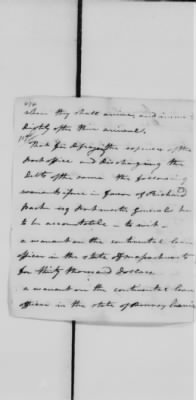 when they shall arrive, and
after their arrival.
That for defraying the expences of the
post office and discharging the
debts of the same the following
warrants issue in favor of Richard
Bache esq Postmaster General he
to be accountable - to wit -
a warrant on the continental loan
officer in the state of massachusetts
for thirty thousand Dollars
a warrant on the continental loan
officer in the state of Pennsylvania